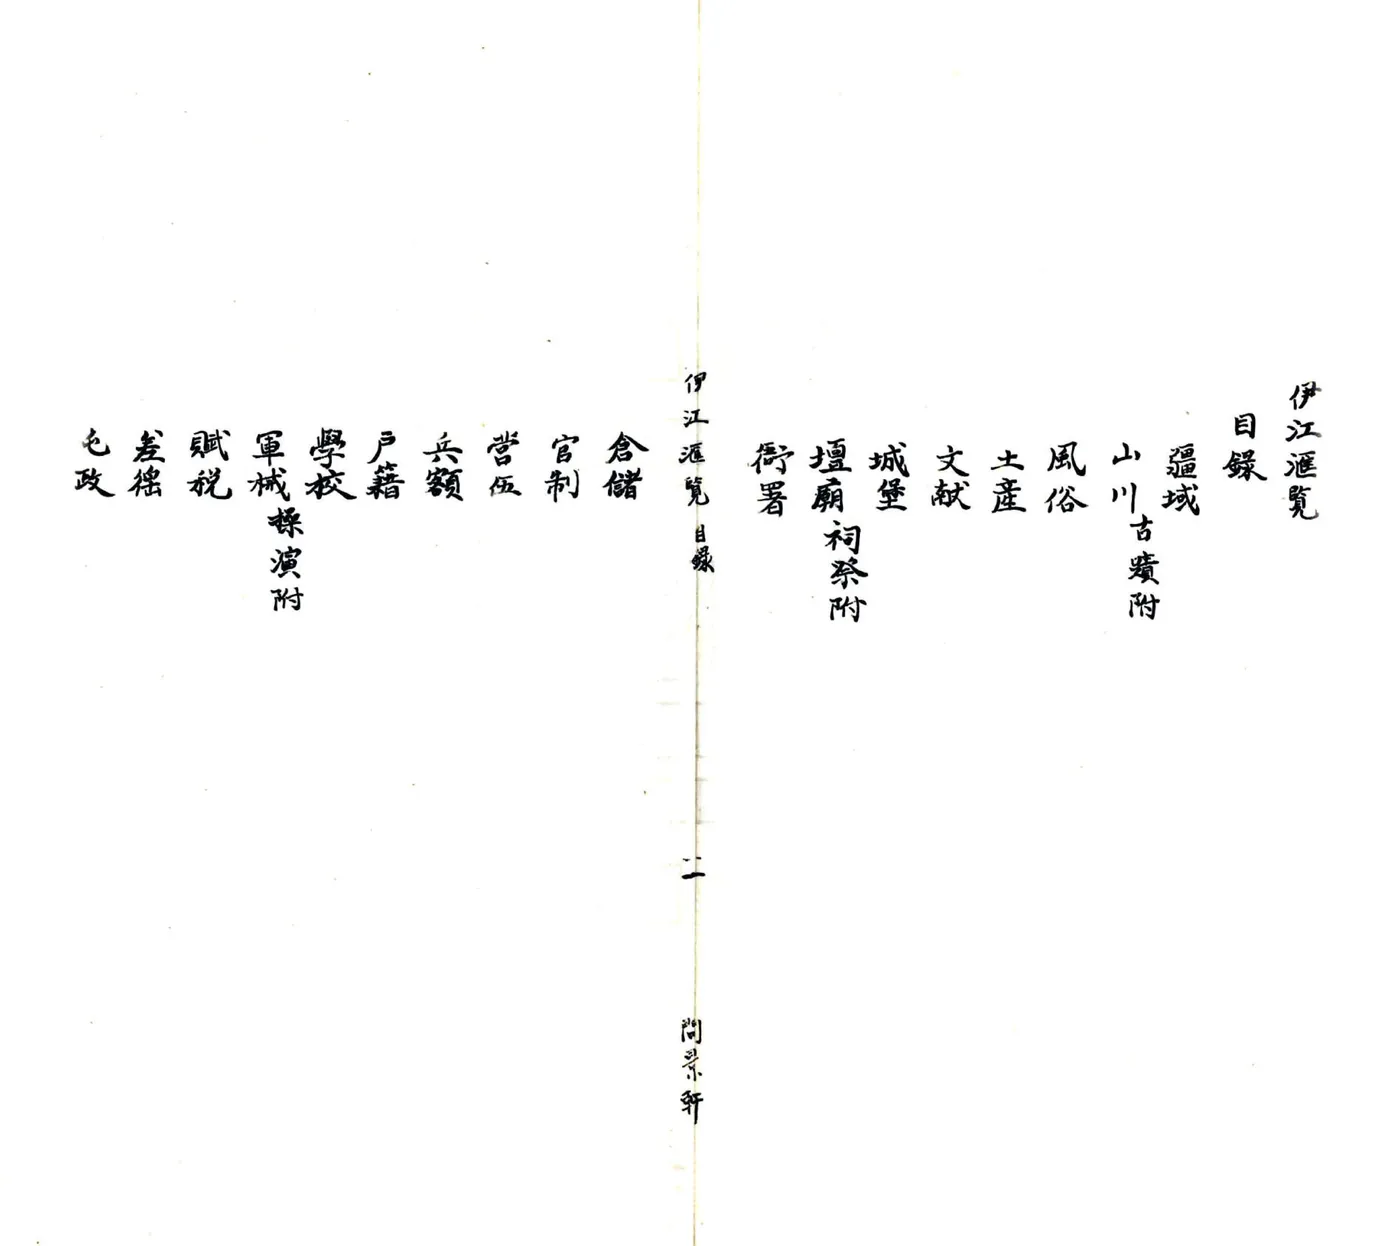 伊江滙覽
目錄
疆域
山川古蹟附
風俗
土產
文献
城堡
壇廟祠祭附
衙署
伊江滙覽 目錄
二
問景軒
倉儲
官制
营伍
兵額
戶籍
學校
軍械操演附
賦税
差徭
屯政